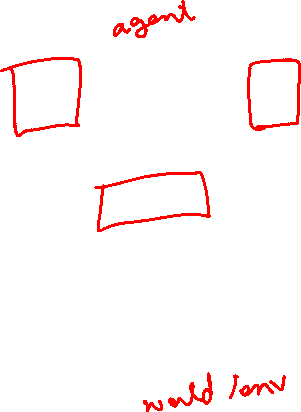 agent
world /env